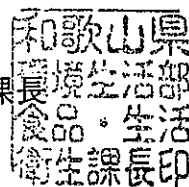 長
和歌山県
環境生活部
食品・生活
衛生課長印